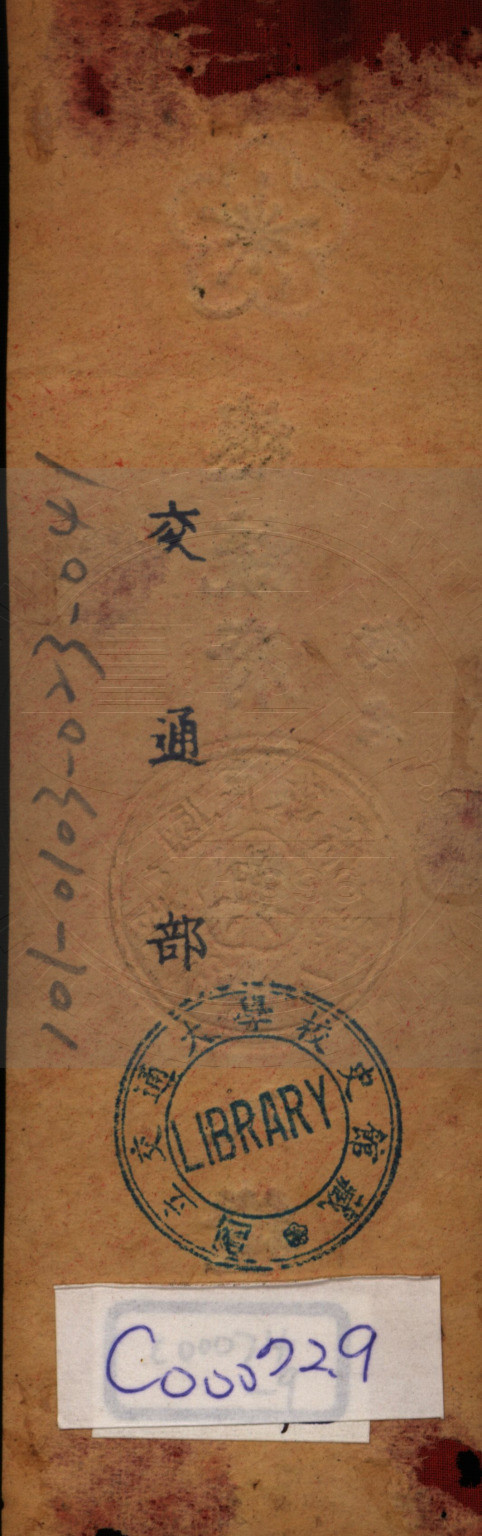 交通部
101-0103-023-041
國立交通大學校史館藏
LIBRARY
C000729